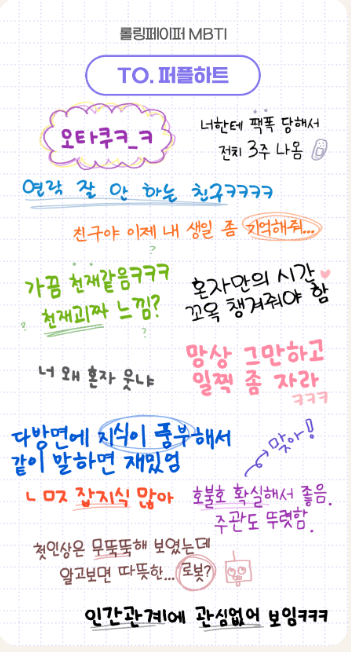 롤링페이퍼 MBTI
TO. 퍼플하트
오타쿠ㅋ_ㅋ
너한테 팩폭 당해서
전치 3주 나옴
연락 잘 안 하는 친구ㅋㅋㅋㅋ
친구야 이제 내 생일 좀 기억해줘...
?
가끔 천재같음ㅋㅋㅋ
천재괴짜 느낌?
?
?
혼자만의 시간
꼬옥 챙겨줘야 함
너 왜 혼자 웃냐
망상 그만하고
일찍 좀 자라
ㅋㅋㅋ
다방면에 지식이 풍부해서
같이 말하면 재밌엄
맞아!
ㄴ ㅁㅈ 잡지식 많아
호불호 확실해서 좋음.
주관도 뚜렷함.
첫인상은 무뚝뚝해 보였는데
알고보면 따뜻한... 로봇?
인간관계에 관심없어 보임ㅋㅋㅋ